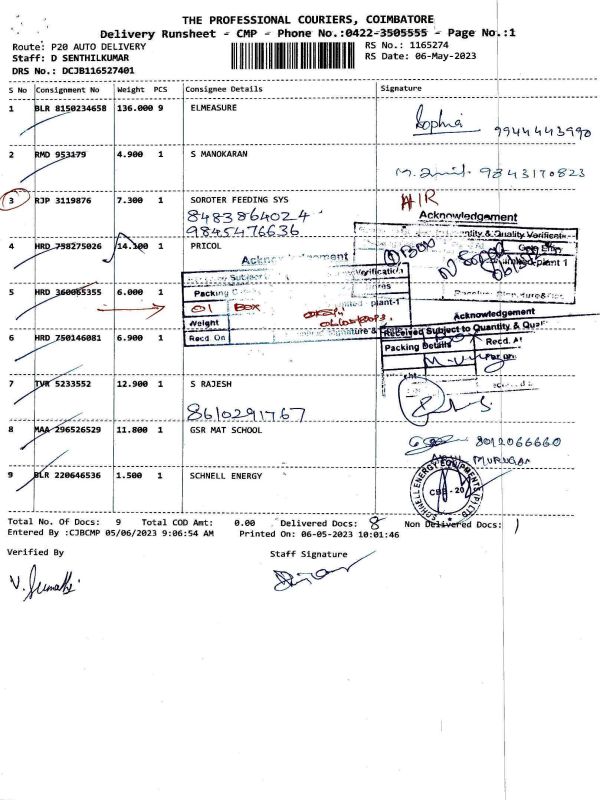 THE PROFESSIONAL COURIERS, COIMBATORE
Delivery Runsheet - CMP - Phone No.:0422-3505555 - Page No.:1
Route: P20 AUTO DELIVERY
RS No.: 1165274
Staff: D SENTHILKUMAR
RS Date: 06-May-2023
DRS No.: DCJB116527401
S No Consignment No Weight PCS Consignee Details Signature
1 BLR 8150234658 136.000 9 ELMEASURE
Sophia 9944443990
2 RMD 953179 4.900 1 S MANOKARAN
9843170823
3 RJP 3119876 7.300 1 SOROTER FEEDING SYS
AIR
8483864024
9845476636
Acknowledgement
4 HRD 758275026 14.100 1 PRICOL
BOX
plant 1
5 HRD 360065355 6.000 1
Packing
01 BOX
plant-1
Weight
Recd. On
Acknowledgement
6 HRD 750146081 6.900 1
Received Subject to Quantity &
Packing Details
Recd. At
7 TVR 5233552 12.900 1 S RAJESH
8610291767
8 MAA 296526529 11.800 1 GSR MAT SCHOOL
8012066660
MURUGAN
9 BLR 220646536 1.500 1 SCHNELL ENERGY
SCHNELL ENERGY EQUIPMENTS (P) LTD
CBE - 20
Total No. Of Docs: 9 Total COD Amt: 0.00 Delivered Docs: 8 Non Delivered Docs: 1
Entered By :CJBCMP 05/06/2023 9:06:54 AM Printed On: 06-05-2023 10:01:46
Verified By Staff Signature